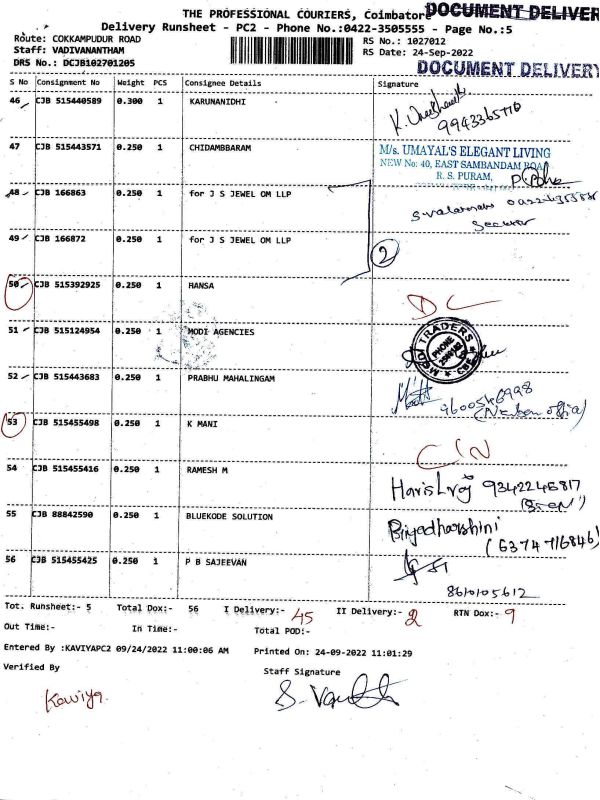 THE PROFESSIONAL COURIERS, Coimbatore
DOCUMENT DELIVERY
Delivery Runsheet - PC2 - Phone No.:0422-3505555 - Page No.:5
Route: COKKAMPUDUR ROAD
RS No.: 1027012
Staff: VADIVANANTHAM
RS Date: 24-Sep-2022
DRS No.: DCJB102701205
DOCUMENT DELIVERY
S No Consignment No Weight PCS Consignee Details Signature
46 CJB 515440589 0.300 1 KARUNANIDHI
9943365776
47 CJB 515443571 0.250 1 CHIDAMBBARAM
M/s. UMAYAL'S ELEGANT LIVING
NEW No: 40, EAST SAMBANDAM ROAD
R. S. PURAM,
48 CJB 166863 0.250 1 for J S JEWEL OM LLP
49 CJB 166872 0.250 1 for J S JEWEL OM LLP
2
50 CJB 515392925 0.250 1 HANSA
DL
51 CJB 515124954 0.250 1 MODI AGENCIES
MODI TRADERS
PHONE
CBE
52 CJB 515443683 0.250 1 PRABHU MAHALINGAM
9600546998
53 CJB 515455498 0.250 1 K MANI
C/N
54 CJB 515455416 0.250 1 RAMESH M
Harish raj 9342246817
55 CJB 88842590 0.250 1 BLUEKODE SOLUTION
Biryadharshini
(6374716846)
56 CJB 515455425 0.250 1 P B SAJEEVAN
8610105612
Tot. Runsheet:- 5 Total Dox:- 56 I Delivery:- 45 II Delivery:- 2 RTN Dox:- 9
Out Time:- In Time:- Total POD:-
Entered By :KAVIYAPC2 09/24/2022 11:00:06 AM Printed On: 24-09-2022 11:01:29
Verified By Staff Signature
Kaviya.